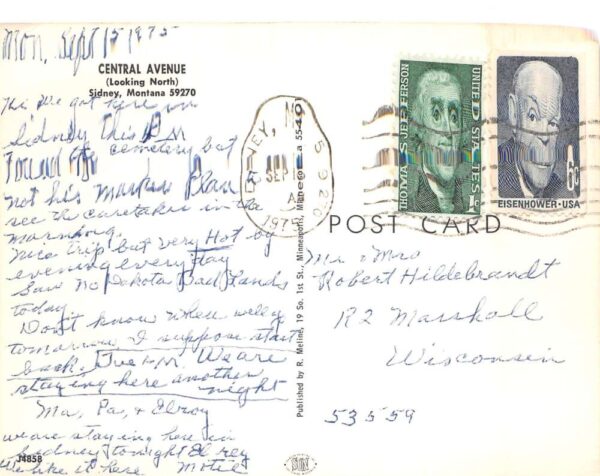 Mon, Sept 15 1975
CENTRAL AVENUE
(Looking North)
Sidney, Montana 59270
Hi We got here in
Sidney this P.M
Found the cemetery but
not his Marker Plan
see the caretaker in the
morning.
Nice Trip but very Hot by
evening every day
Saw No Dakota Bad Lands
today.
Don't know when we'll
tomorrow I suppose start
back. We are
staying here another
night
Ma, Pa, & Elroy
we are staying here in
Sidney tonight El roy
We like it here Motel
J4858
Published by R. Meline, 19 So. 1st St., Minneapolis, Minnesota 55401
SIDNEY, M
59270
SEP 1
A
1975
THOMAS JEFFERSON
UNITED STATES 1c
6c
EISENHOWER·USA
POST CARD
Mr & Mrs
Robert Hildebrandt
R2 Marshall
Wisconsin
53559